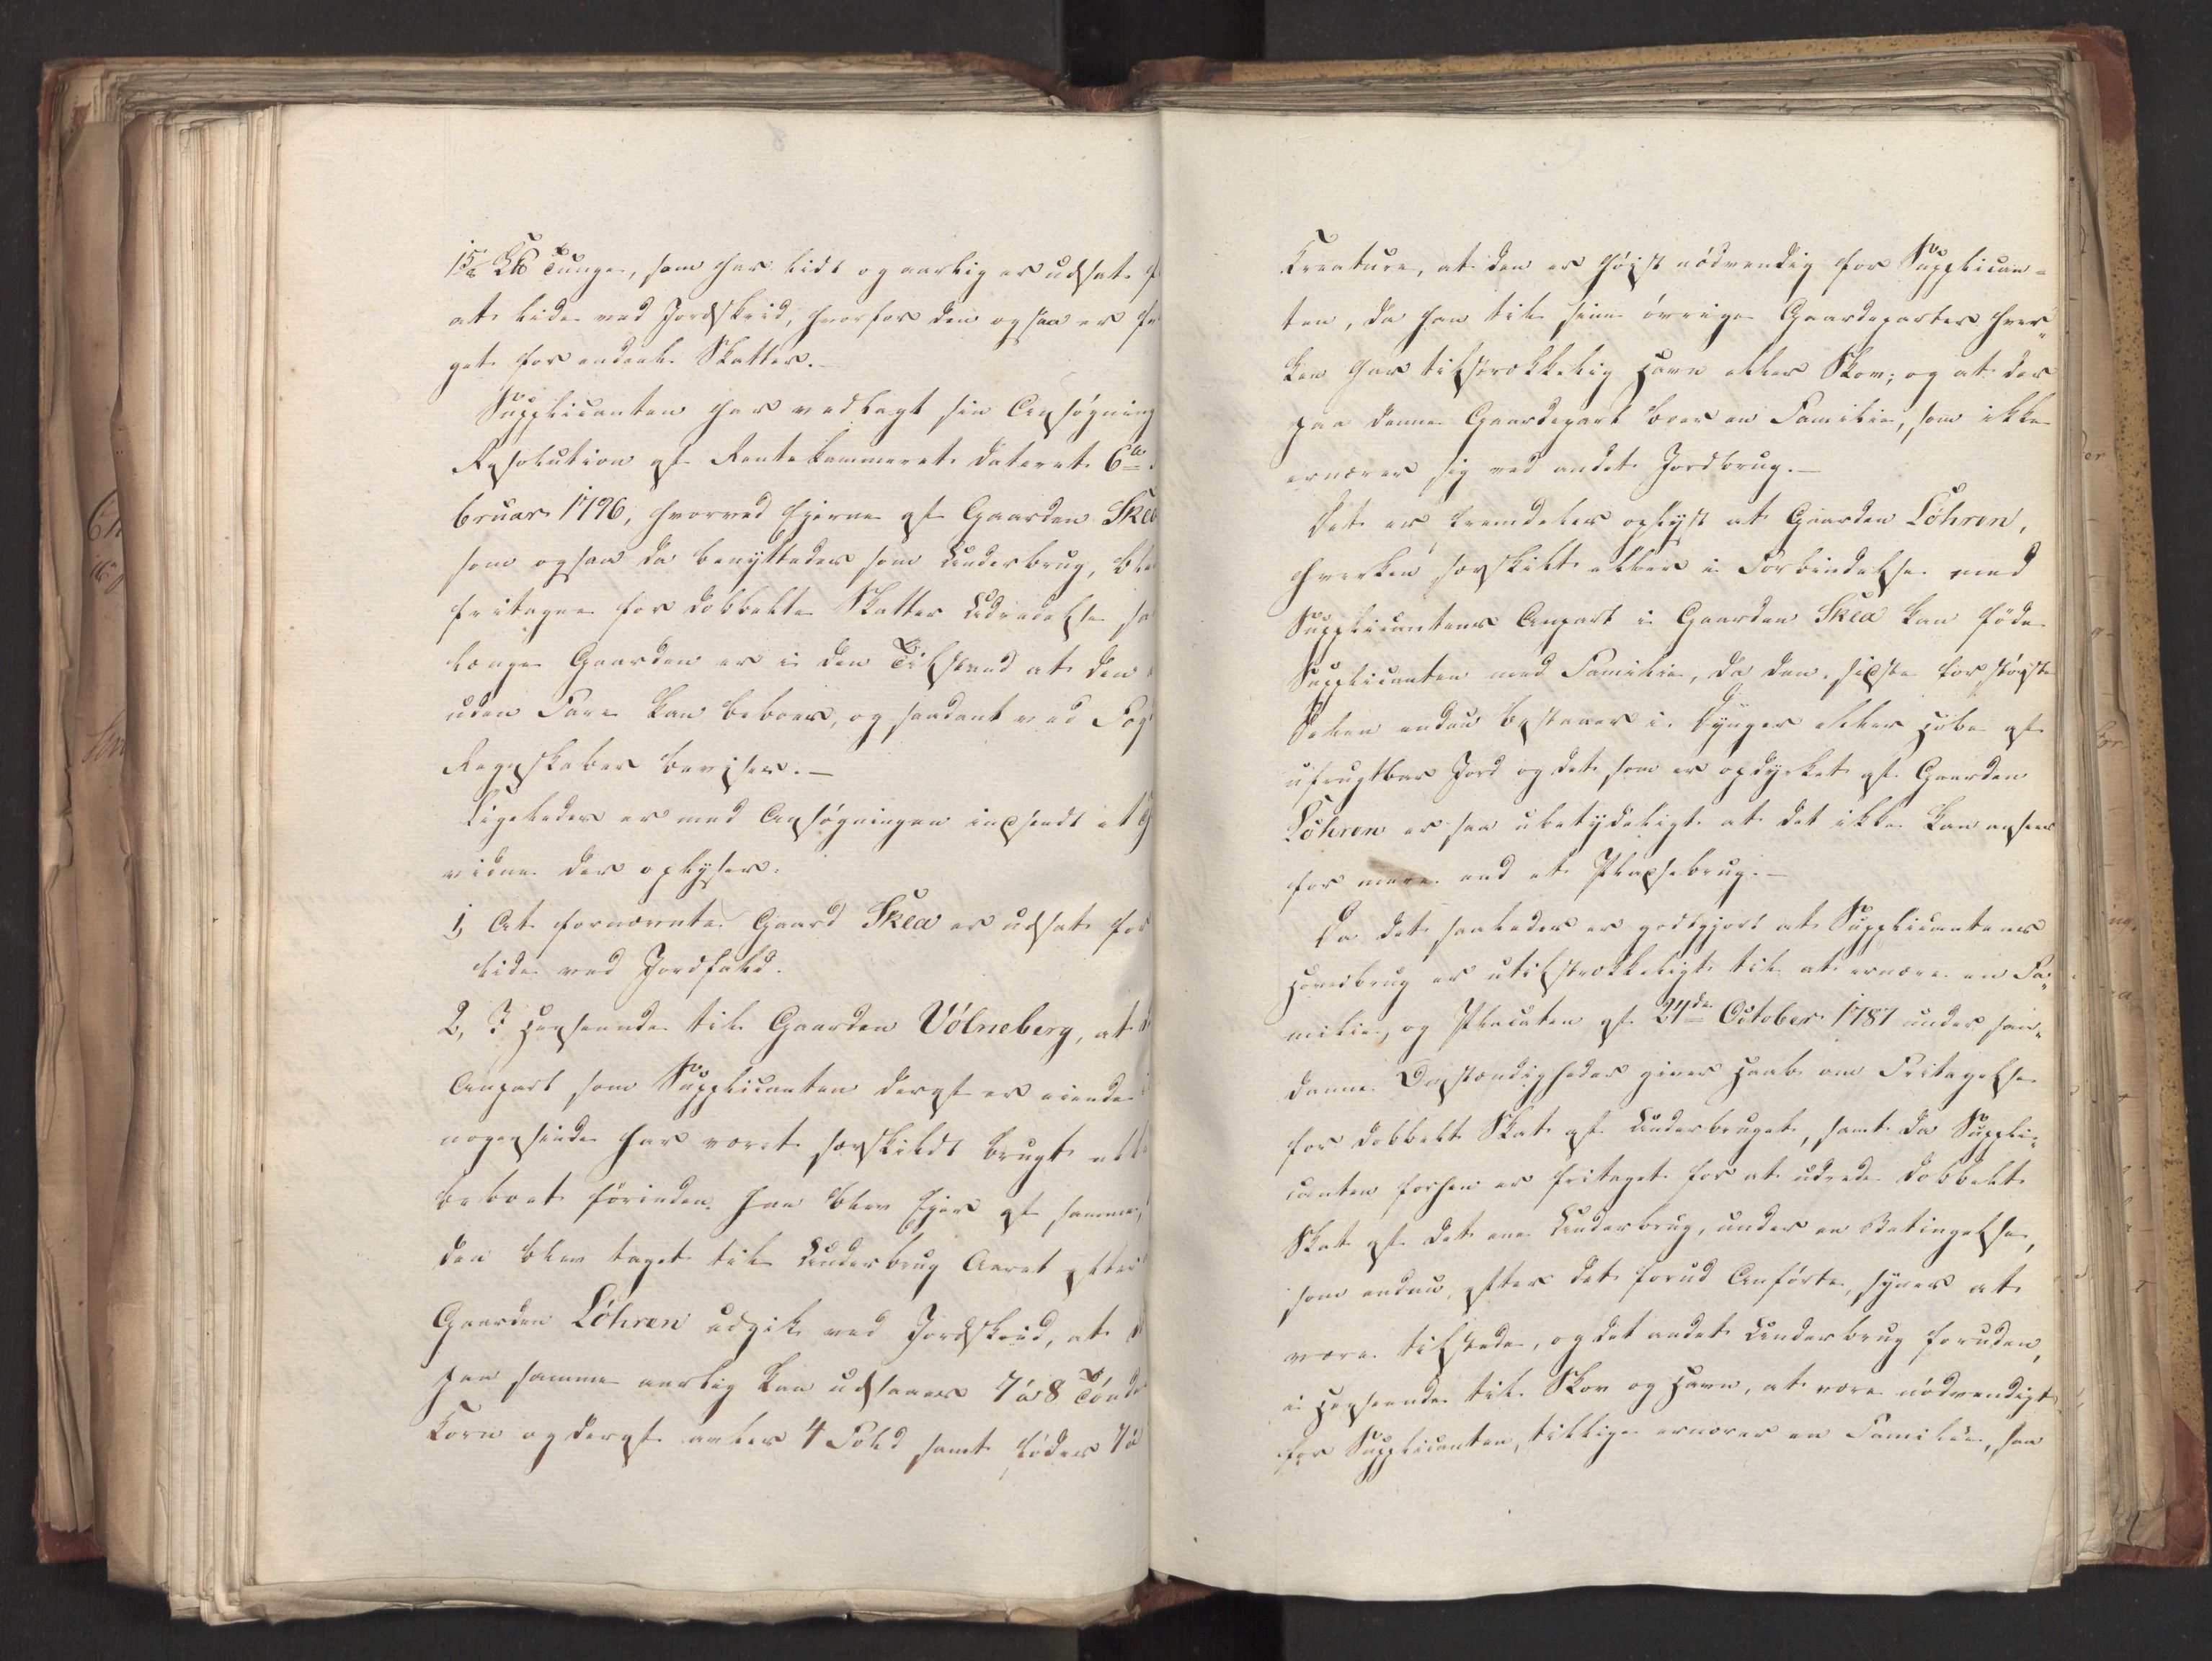 15/8 L℔ Tunge, som har lidt og aarlig er udsat
at lide ved Jordskrid, hvorfor den ogsaa er
get for endeel Skatter.
Supplicanten har vedlagt sin Ansøgning
Resolution af Rentekammeret dateret 6te
bruar 1796, hvorved Ejerne af Gaarden Skea
som ogsaa da benyttedes som Underbrug, ble
fritagne for dobbelte Skatters Udredelse, sa
længe Gaarden er i den Tilstand at den
uden Fare kan beboes, og saadant ved Fog
Regnskaber bevises.—
Ligeledes er med Ansøgningen indsendt et
vidne der oplyser.
1, At fornævnte Gaard Skea er udsat for
lide ved Jordfald.
2, I Henseende til Gaarden Völneberg, at
Anpart som Supplicanten deraf er eiende
nogensinde har været særskildt brugt ell
beboet förinden han blev Ejer af samme,
den blev taget til Underbrug Aaret efter
Gaarden Löhren udgik ved Jordskrid, at
paa samme aarlig kan udsaaes 7 à 8 Tönde
Korn og deraf avles 4 Fold samt födes 7 à
Kreature, at den er höjst nödvendig for Supplican-
ten, da han til sine övrige Gaardeparter hver-
ken har tilstrækkelig Havn eller Skov; og at der
paa denne Gaardepart boer en Familie, som ikke
ernærer sig ved andet Jordbrug.—
Det er fremdeles oplyst at Gaarden Löhren,
hverken særskilt eller i Forbindelse med
Supplicantens Anpart i Gaarden Skea kan föde
Supplicanten med Familie, da den sidste for störste
Delen endnu bestaaer i Dynger eller Hobe af
ufrugtbar Jord og det som er opdyrket af Gaarden
Löhren er saa ubetydeligt at det ikke kan ansees
for mere end et Pladsebrug.—
Da det saaledes er godtgjort at Supplicantens
Hovedbrug er utilstrækkeligt til at ernære en Fa-
milie, og Placaten af 24de October 1787 under saa-
danne Omstændigheder giver Haab om Fritagelse
for dobbelt Skat af Underbruget, samt da Suppli-
canten forhen er fritaget for at udrede dobbelt
Skat af det ene Underbrug, under en Betingelse,
som endnu, efter det forud Anförte, synes at
være tilstede, og det andet Underbrug foruden,
i Henseende til Skov og Havn, at være nödvendigt
for Supplicanten, tillige ernærer en Familie, saa